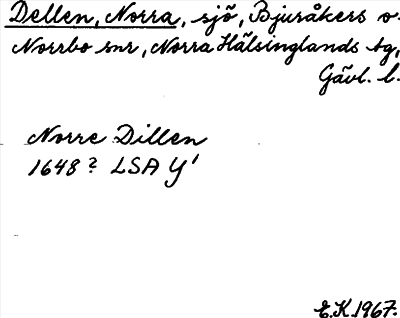 Dellen, Norra, sjö, Bjuråkers o.
Norrbo snr, Norra Hälsinglands tg,
Gävl. l.
Norre Dillen
1648? LSA Y'
E.K. 1967.